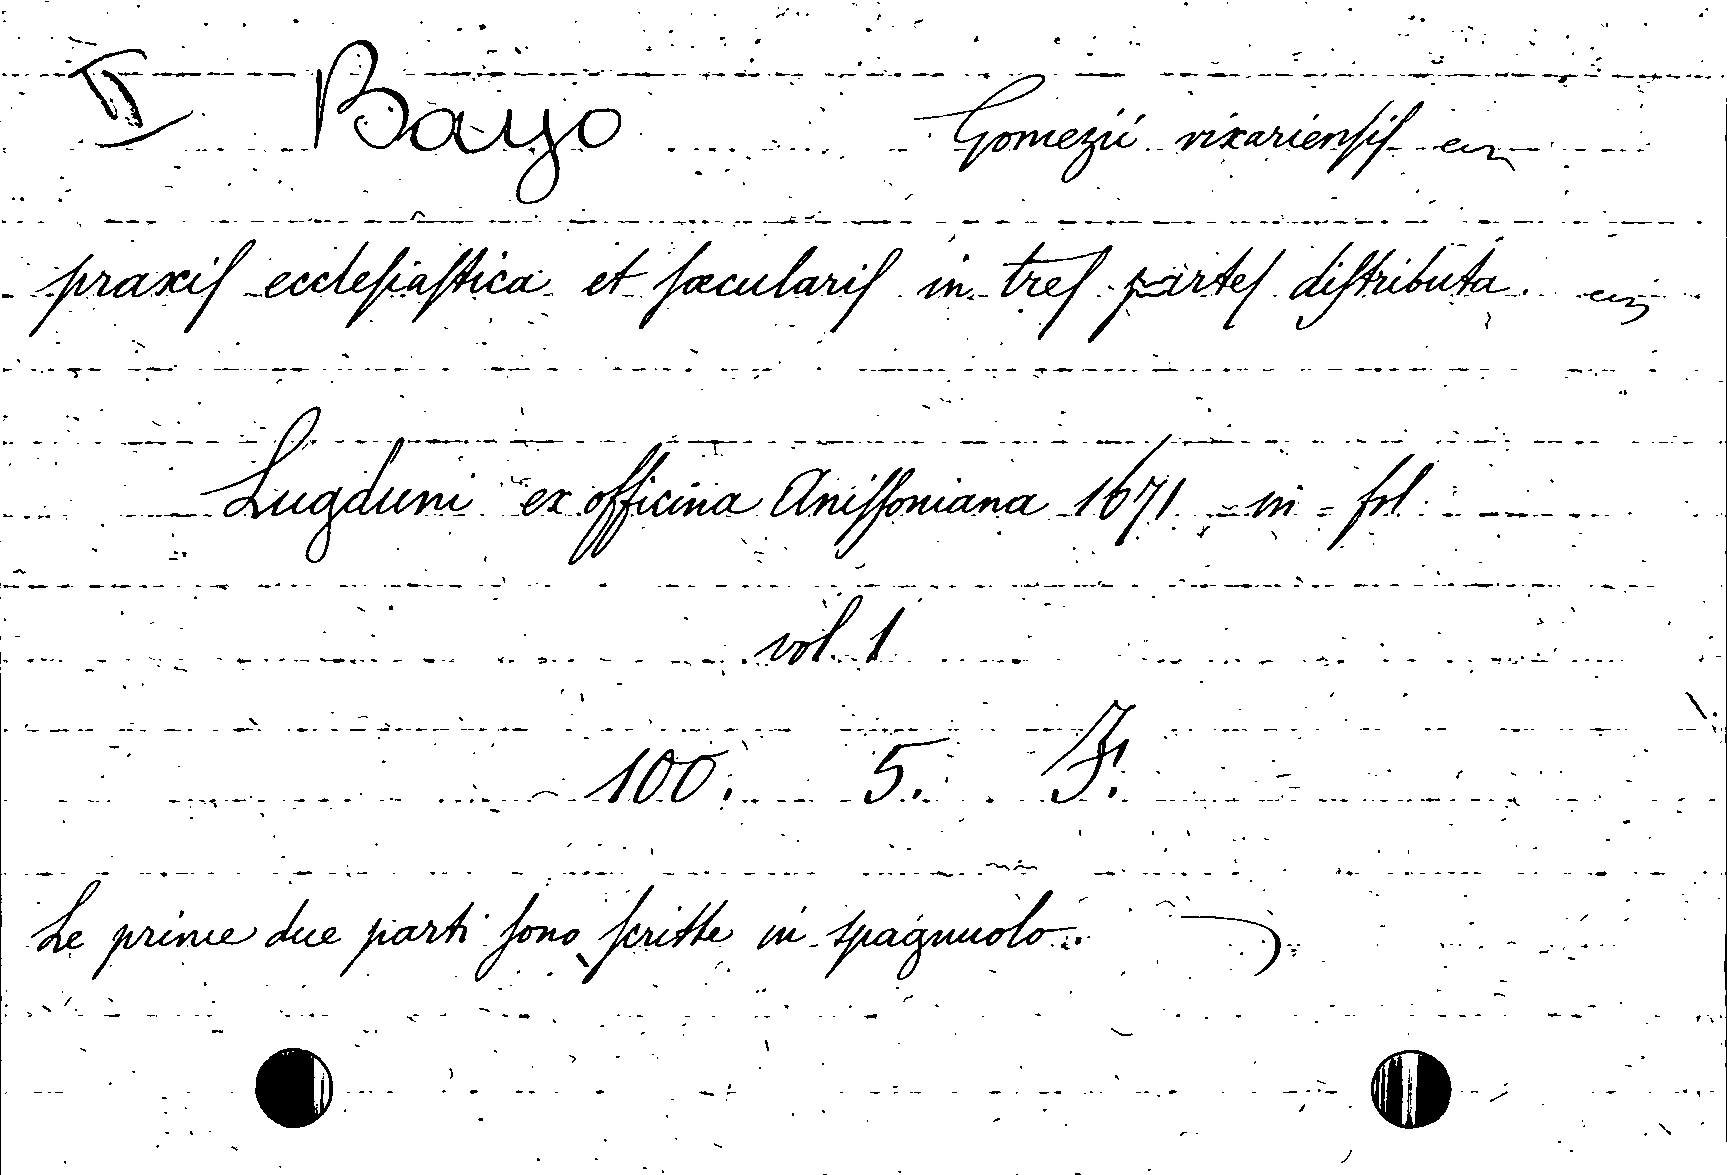 II Bayo Gomezii vixariensis
praxis ecclesiastica et sæcularis in tres partes distributa.
Lugduni ex officina Anissoniana 1671 - in - fol.
vol. 1
100. 5. F.
Le prime due parti sono scritte in spagnuolo.